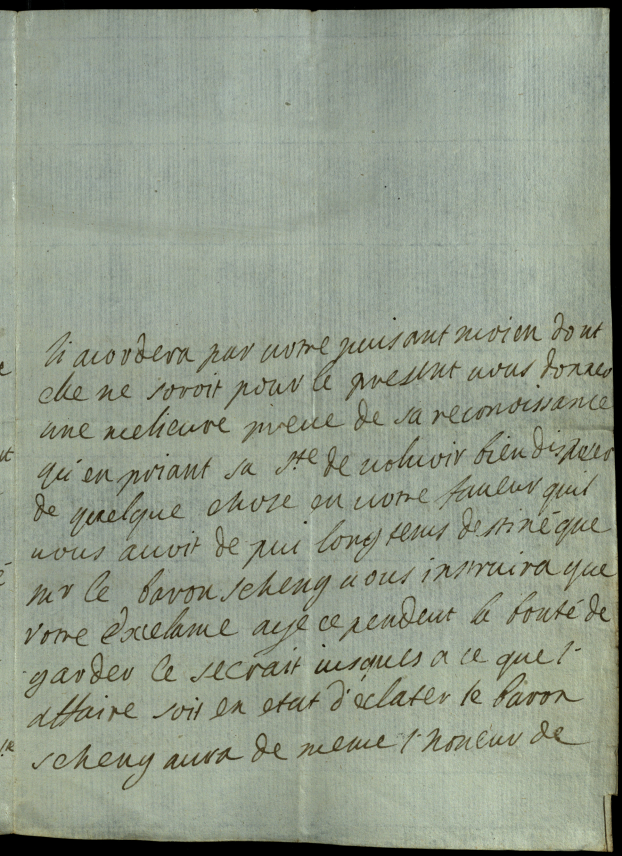 li acordera par votre puisant moien dont
elle ne soroit pour le present vous donner
une melieure preuve de sa reconoissance
qu'en priant sa Ste de voluoir bien disposer
de quelque chose en votre faveur qu'il
vous avoit de pui long tems destiné que
mr le baron scheng vous instruira que
votre Excelance aye cependent la bonté de
garder le secrait iusques a ce que l'
affaire soit en etat d'éclater le baron
scheng aura de meme l'honeur de